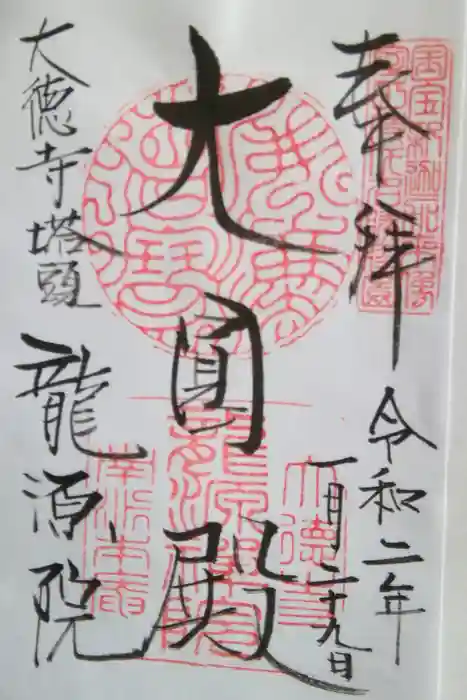 奉拝
令和二年
一月二十九日
大圓殿
大徳寺塔頭
龍源院